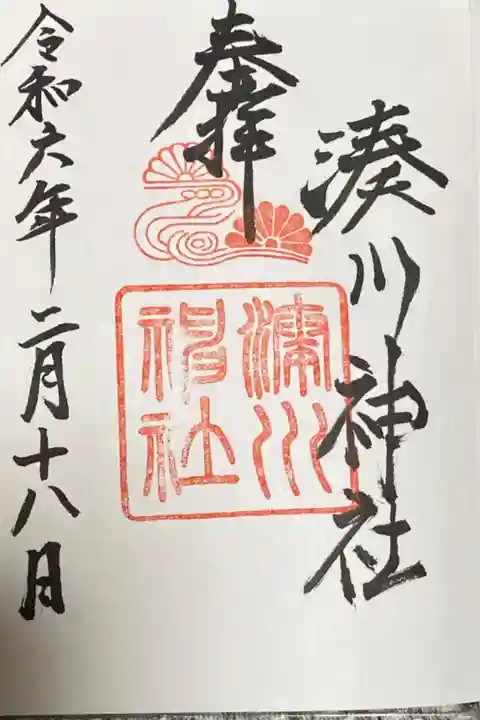 奉拝
湊川神社
湊川
神社
令和六年二月十八日